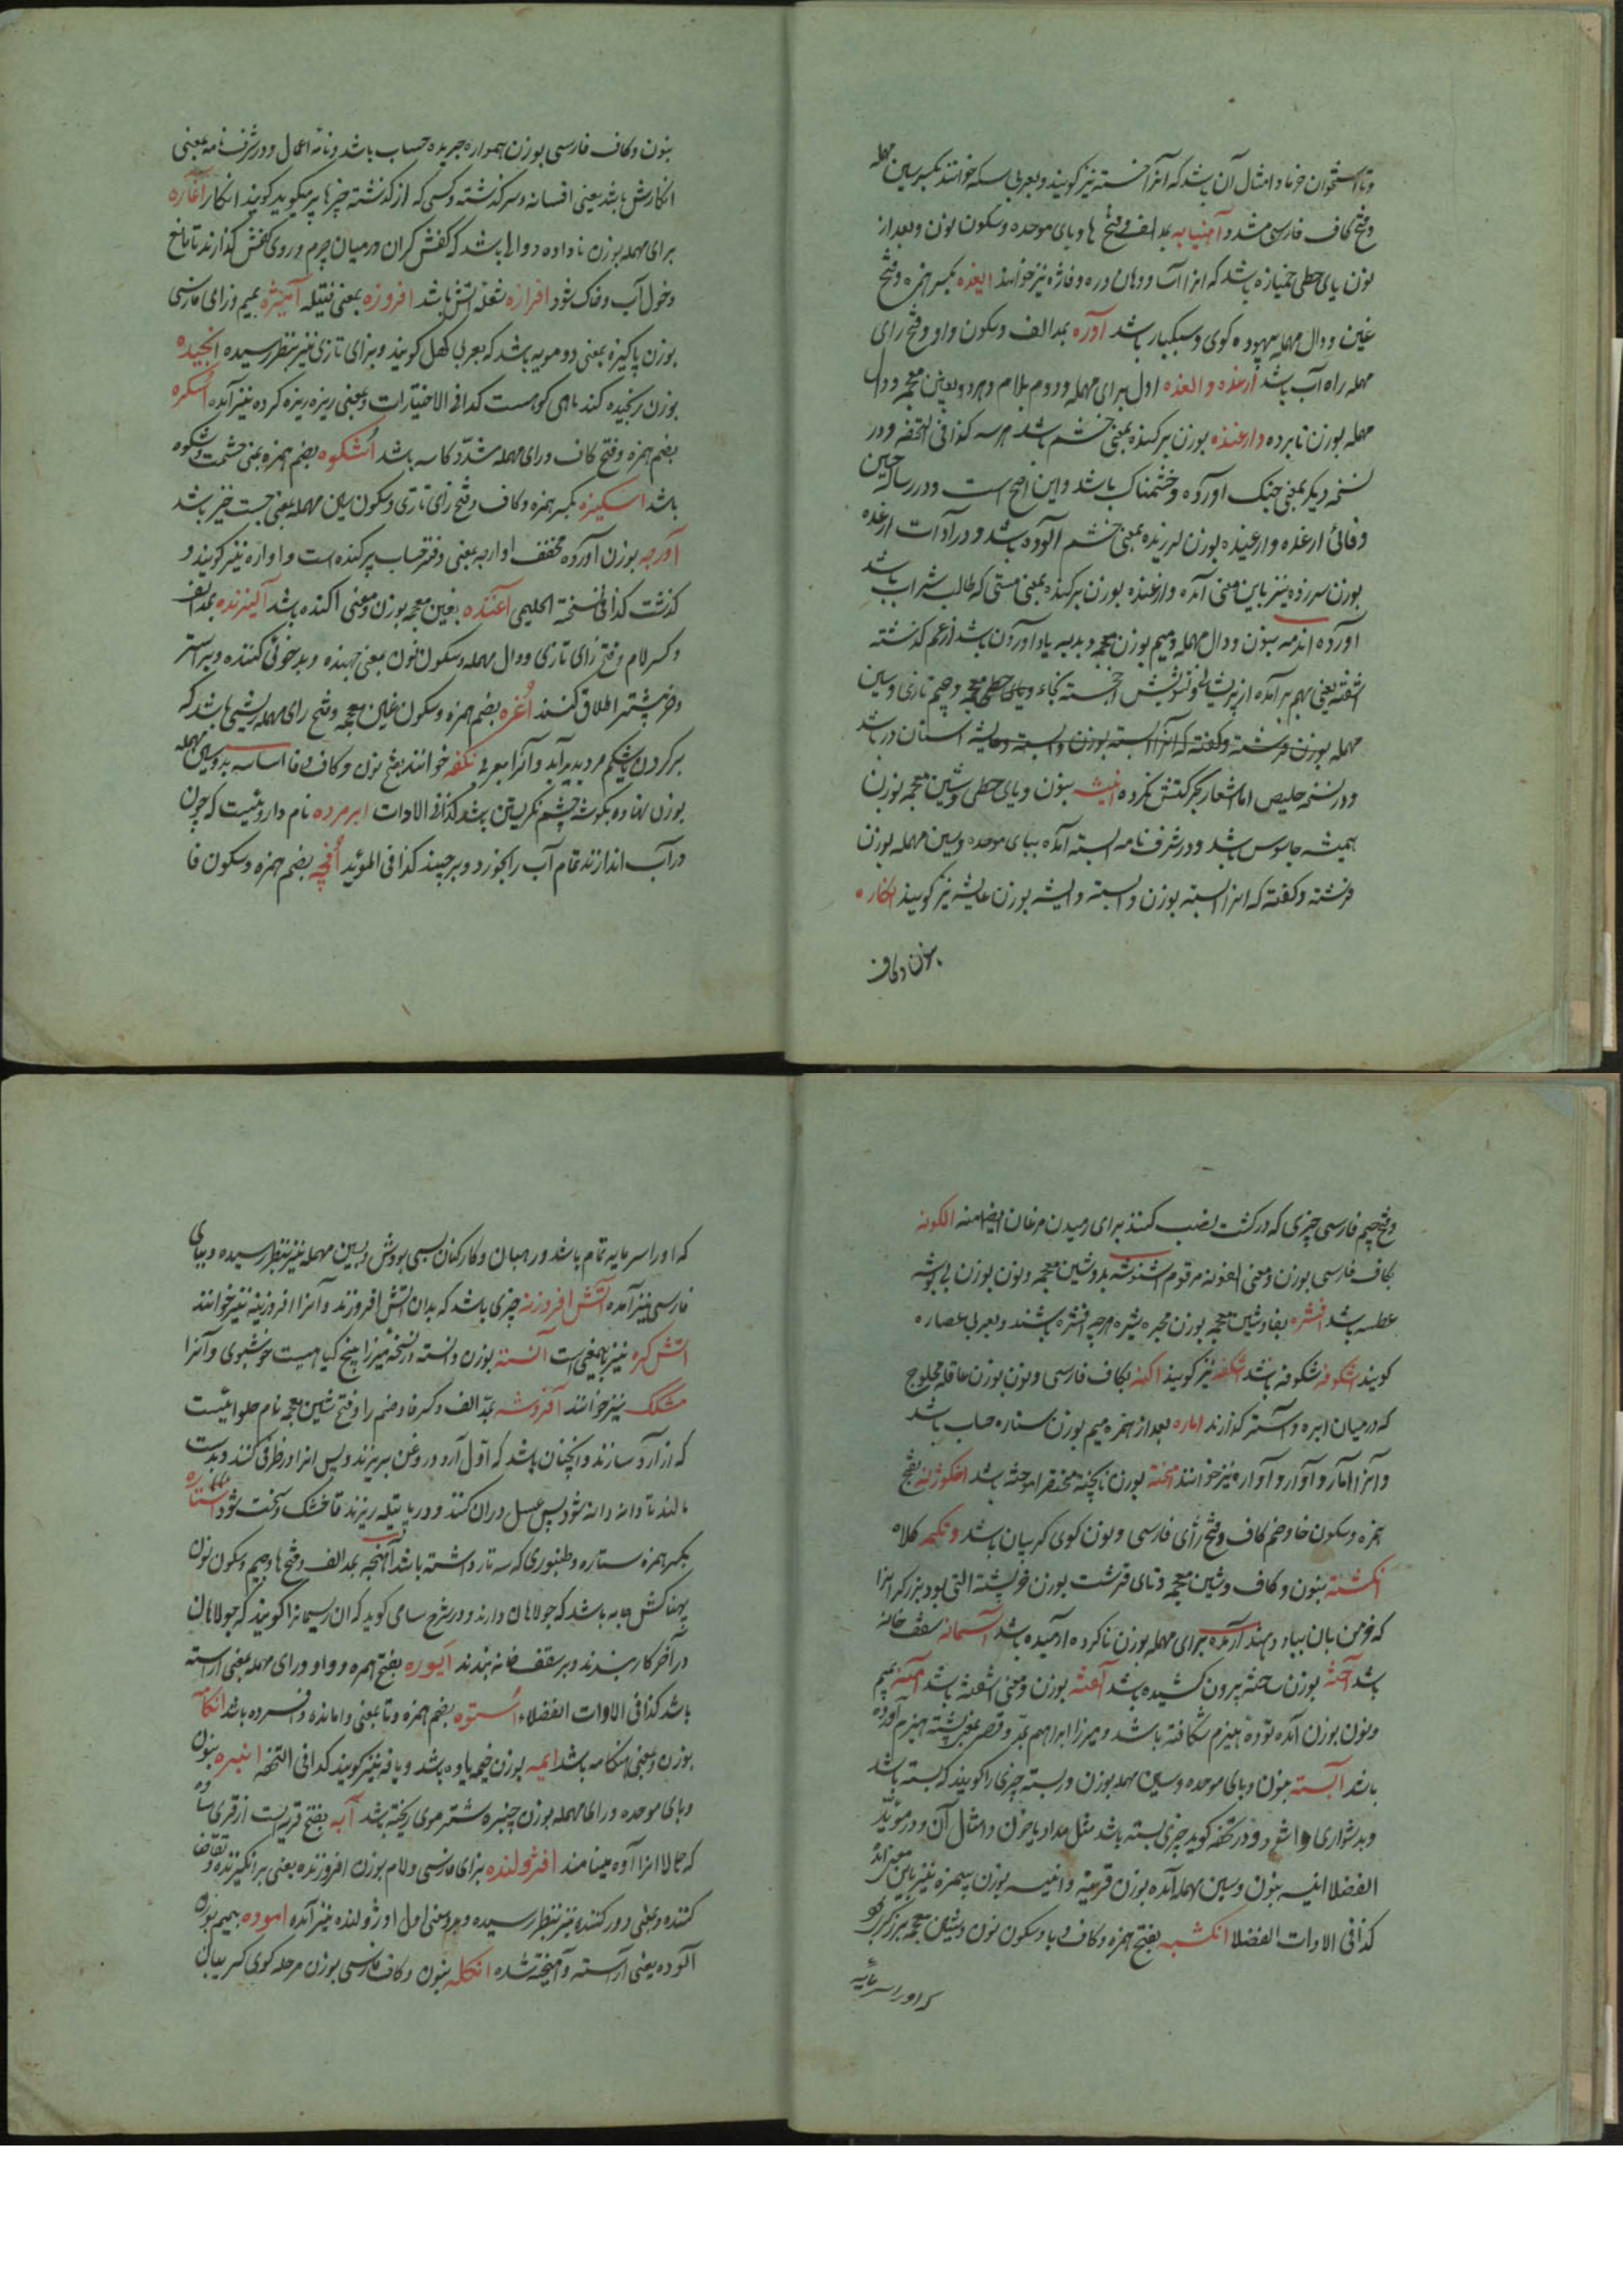 و تا استخوان خرما و امثال آن باشد که آنرا خسته نیز گویند و بعربی سکه خوانند بکسر سین مهمله
و فتح کاف فارسی مشدد آهنیابه بمد الف و فتح ها و بای موحده و سکون نون و بعد از
نون یای حطی خمیازه باشد که انرا آسا و دهان دره و فاژه نیز خوانند ایغده بکسر همزه و فتح
غین و دال مهمله بیهوده کوی و سبکبار باشد آوره بمد الف و سکون واو و فتح رای
مهمله راه آب باشد ارغده و الغده اول برای مهمله و دوم بلام و هر دو بغین معجمه و دال
مهمله بوزن نابرده و ارغنده بوزن برکنده بمعنی خشم باشد هر سه کذا فی التحفه و در
نسخه دیگر بمعنی جنک آورده و خشمناک باشد و این اصح است و در رساله حسین
وفائی ارغده و ارغیده بوزن لرزیده بمعنی خشم آلوده باشد و در آدات ارغده
بوزن سرزده نیز باین معنی آمده و ارغنده بوزن برکنده بمعنی مستی که طالب شراب باشد
آورده اندمه بنون و دال مهمله و میم بوزن و بدبه یاد آوردن باشد از غم کذشته
اشفته یعنی بهم برآمده از پریشانی و تشویش اخجسته بخاء معجمه و جیم تازی و سین
مهمله بوزن فرشته و گفته که آنرا آبسته بوزن وابسته استان در باشد
و در نسخه حلیمی اما اشعار بحرکتش نکرده انیشه بنون و یای حطی و شین معجمه بوزن
همیشه جاسوس باشد و در شرف نامه ابسته آمده ببای موحده و سین مهمله بوزن
فرشته و گفته که انرا ابسته بوزن وابسته و ایشه بوزن عایشه نیز گویند انکاره
بنون و کاف
بنون و کاف فارسی بوزن همواره جریده حساب باشد و نامه اعمال و در شرف نامه بمعنی
انکارش باشد یعنی افسانه و سرکذشته و کسی که از کذشته چیزها بر میکوید کویند انکار آغاره
برای مهمله بوزن ناداده دوالها باشد که کفش کران در میان چرم و روی کفش گذارند تا مانع
دخول آب و خاک شود افرازه شعله اتش باشد افروزه بمعنی فتیله آمیژه بمیم و زای فارسی
بوزن پاکیزه بمعنی دو مویه باشد که بعربی کهل کویند و بزای تازی نیز بنظر رسیده انجیده
بوزن رنجیده کذا فی الاختیارات و بمعنی ریزه ریزه کرده نیز آمده اسکره
بضم همزه و فتح کاف و رای مهمله مشدد کاسه باشد اشکوه بضم همزه بمعنی حشمت و شکوه
باشد اسکیزه بکسر همزه و کاف و فتح زای تازی و سکون سین مهمله بمعنی جست خیز باشد
آورجه بوزن آورده مخفف اوارجه بمعنی دفتر حساب پرکنده است و اواره نیز کویند و
کذشت کذا فی نسخة الحلیمی آغنده بغین معجمه بوزن و معنی آکنده باشد آلیزنده بمد الف
و کسر لام و فتح زای تازی و دال مهمله و سکون نون بمعنی جهنده و بدخوئی کننده و بر استر
و خر بیشتر اطلاق کنند اغره بضم همزه و سکون غین معجمه و فتح رای مهمله باشد که
بر کردن یا شکم مرد پدید آید و آنرا بعربی نکفه خوانند بفتح نون و کاف و فا اساسه بدو سین مهمله
بوزن نهاده بکوشه چشم نکریستن باشد کذا فی الادات ابر مرده نام داروئیست که چون
در آب اندازند تمام آب را بخورد و برچیند کذا فی المؤید افجه بضم همزه و سکون فا
و فتح جیم فارسی چیزی که در کشت نصب کنند برای رمیدن مرغان ایضا منه الکونه
بکاف فارسی بوزن و معنی مرقوم اشنوشه بدو شین معجمه و نون بوزن
عطسه باشد افشره بفا و شین معجمه بوزن هر چه افشره باشند و بعربی عصاره
کویند اشکوفه شکوفه باشد اشکفه نیز کویند اکنه بکاف فارسی و نون بوزن عاقله محلوج
که در میان ابره و آستر کذارند اماره بعد از همزه میم بوزن ستاره حساب باشد
و آنرا آمار و آوار و آواره نیز خوانند امخته بوزن ناپخته مختصر آموخته باشد اخکوژنه بفتح
همزه و سکون خا و ضم کاف و فتح زای فارسی و نون کوی کریبان باشد و تکمه کلاه
انکشته بنون و کاف و شین معجمه و تای قرشت بوزن التی بود برزکر انرا
که خرمن بان بباد دهند آرمده برای مهمله بوزن ناکرده ارمیده باشد آسمانه سقف خانه
باشد آخته بوزن ساخته بیرون کشیده باشد آغشته بوزن و معنی اشفته باشد آمنه بمیم
و نون بوزن آمده توده هیزم شکافته باشد و میرزا ابراهیم بمد و قصر بمعنی پشته هیزم آورده
باشد آبسته بنون و بای موحده و سین مهمله بوزن وربسته چیزی را کویند که بسته باشد
و بدشواری وا شود و در تحفه کوید چیزی بسته باشد مثل مداد یا خون و امثال آن و در مؤید
الفضلا انیسه بنون و سین مهمله آمده بوزن و انیسه بوزن نیز باین معنی آمده
کذا فی الادات الفضلا انکشبه بفتح همزه و کاف و با و سکون نون و شین معجمه برزکر
که او را سرمایه
که او را سرمایه تمام باشد و رهبان و کارکنان بسی بودش و بسین مهمله نیز بنظر رسیده و ببای
فارسی نیز آمده آتش افروزنه چیزی باشد که بدان اتش افروزند و آنرا افروزینه نیز خوانند
اتش کره نیز بهمین معنی است آنسته بوزن دانسته در نسخه میرزا بیخ کیاهیست خوشبوی و آنرا
مشکک نیز خوانند آفروشه بمد الف و کسر فا و ضم را و فتح شین معجمه نام حلوائیست
که از آرد سازند و آنچنان باشد که اول آرد و روغن بریزند و پس انرا در ظرفی کنند و بدست
مالند تا دانه دانه شود پس عسل در ان کنند و در پاتیله ریزند تا خشک و سخت شود استاره
بکسر همزه ستاره و طنبوری که سه تار داشته باشد آهنجه بمد الف و فتح ها و جیم و سکون نون
پهناکش جامه باشد که جولاهان دارند و در شرح سامی کوید که ان ریسمانرا کویند که جولاهان
در آخر کار بندند و بر سقف خانه بندند ایوره بفتح همزه و واو و رای مهمله بمعنی آراسته
باشد کذا فی الادات الفضلاء استوه بضم همزه و تا بمعنی وامانده و افسرده باشد انکامه
بوزن و بمعنی هنکامه باشد ایمه بوزن خیمه یاوه باشد و یافه نیز کویند کذا فی التحفه انبره بنون
و بای موحده و رای مهمله بوزن چنبره شتر موی ریخته باشد آبه بفتح قریه است از قرای ساوه
که حالا انرا آوه مینامند افژولنده بزای فارسی و لام بوزن افروزنده یعنی برانکیزنده و تقاضا
کننده و بمعنی دور کننده نیز بنظر رسیده و بهر دو معنی اول اوژولنده نیز آمده اموده بمیم بوزن
آلوده یعنی آراسته و آمیخته شده انکله بنون و کاف فارسی بوزن مرحله کوی کریبان